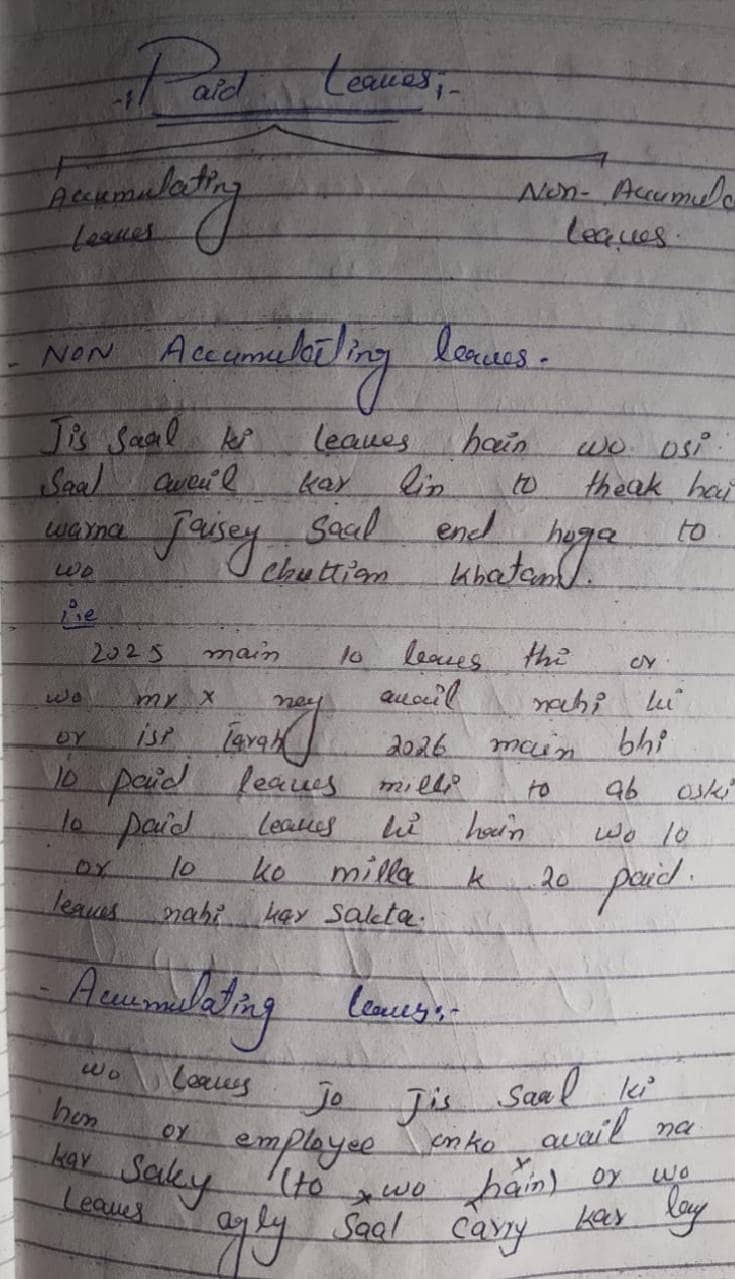 -: Paid Leaves;-
Accumulating Non- Accumula
leaves leaves.
- NON Accumulating leaves -
Jis Saal ki leaves hain wo osi
Saal avail kar lin to theak hai
warna jaisey Saal end hoga to
wo chuttian khatam.
i.e
2025 main 10 leaves thi or
wo mr x ney avail nahi ki
or isi tarah 2026 main bhi
10 paid leaves milli to ab oski
10 paid leaves hi hain wo 10
or 10 ko milla k 20 paid.
leaves nahi kar sakta.
- Accumulating leaves:-
wo leaves jo jis saal ki
hon or employee inko avail na
kar saky (to wo hain) or wo
leaves agly saal carry kar lay